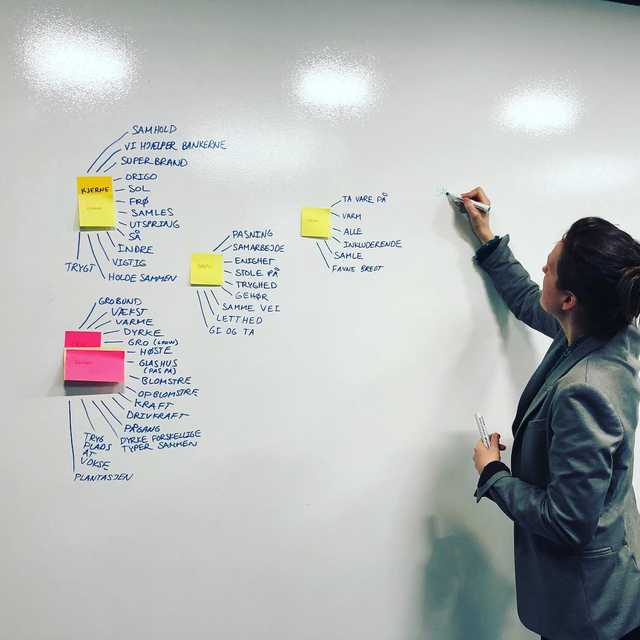 SAMHOLD
VI HJÆLPER BANKERNE
SUPERBRAND
KJERNE
ORIGO
SOL
FRØ
SAMLES
UTSPRING
SÅ
INDRE
VIGTIG
HOLDE SAMMEN
TRYGT
PASNING
SAMARBEJDE
ENIGHET
STOLE PÅ
TRYGHED
GEHØR
SAMME VEI
LETTHED
GI OG TA
TA VARE PÅ
VARM
ALLE
INKLUDERENDE
SAMLE
FAVNE BREDT
GROBUND
VÆKST
VARME
DYRKE
GRO (GROW)
HØSTE
GLASHUS
(PAS PÅ)
BLOMSTRE
OPBLOMSTRE
KRAFT
DRIVKRAFT
PÅGANG
DYRKE FORSKELLIGE
TYPER SAMMEN
TRYG
PLADS
AT
VOKSE
PLANTASJEN